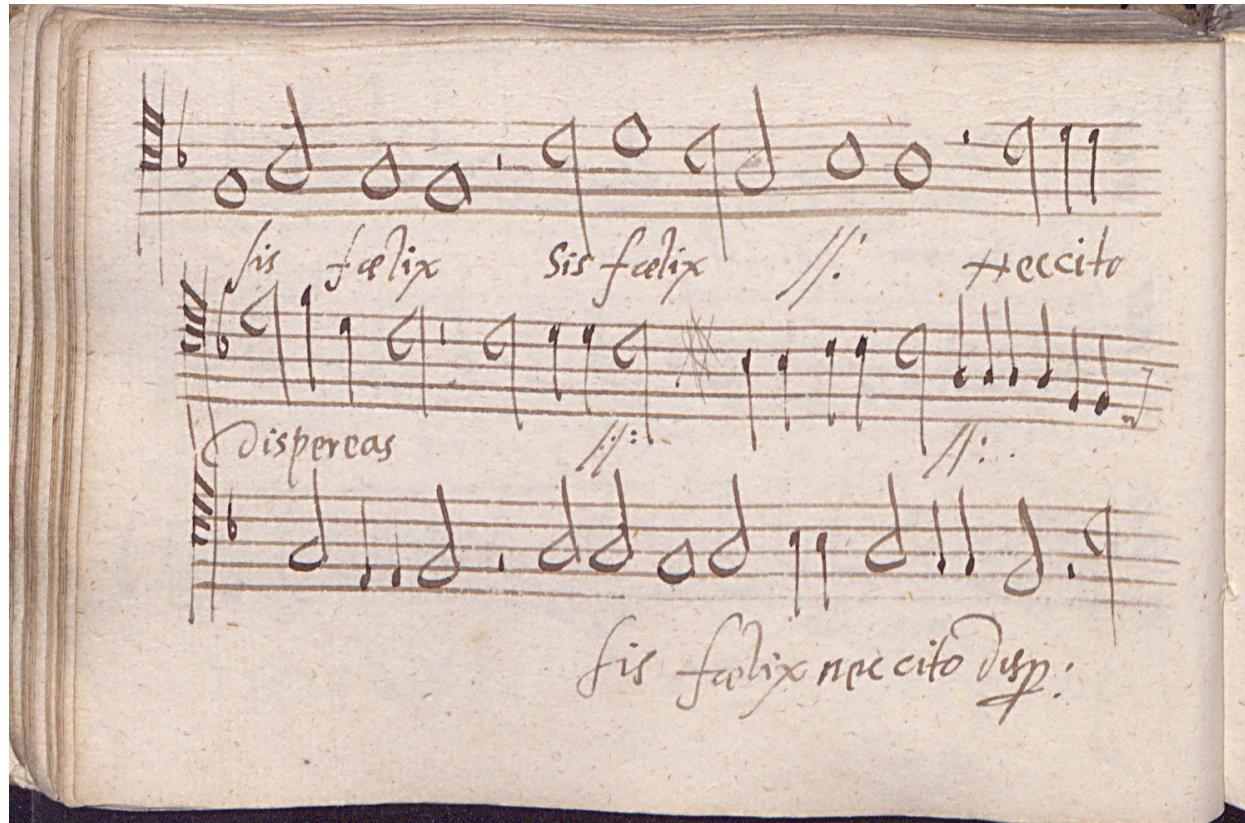 sis fœlix Sis fœlix //: Neccito
dispereas //: //:
sis fœlix nec cito disp: